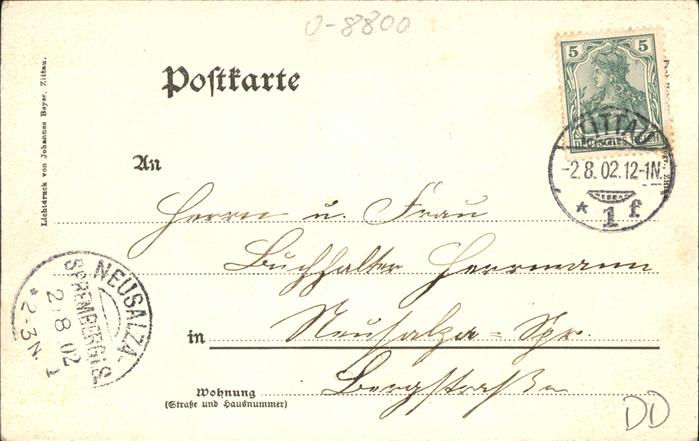 0-8800
Postkarte
Lichtdruck von Johannes Beyer, Zittau.
5 5
DEUTSCHES REICH
ZITTAU
-2.8.02.12-1N.
* 1 f
An
Herrn u. Frau
Buchhalter Herrmann
in Neusalza-Spr.
Bergstraße
Wohnung
(Straße und Hausnummer)
NEUSALZA-
SPREMBERG i. S.
2.8.02
* 2-3 N. 1
DD